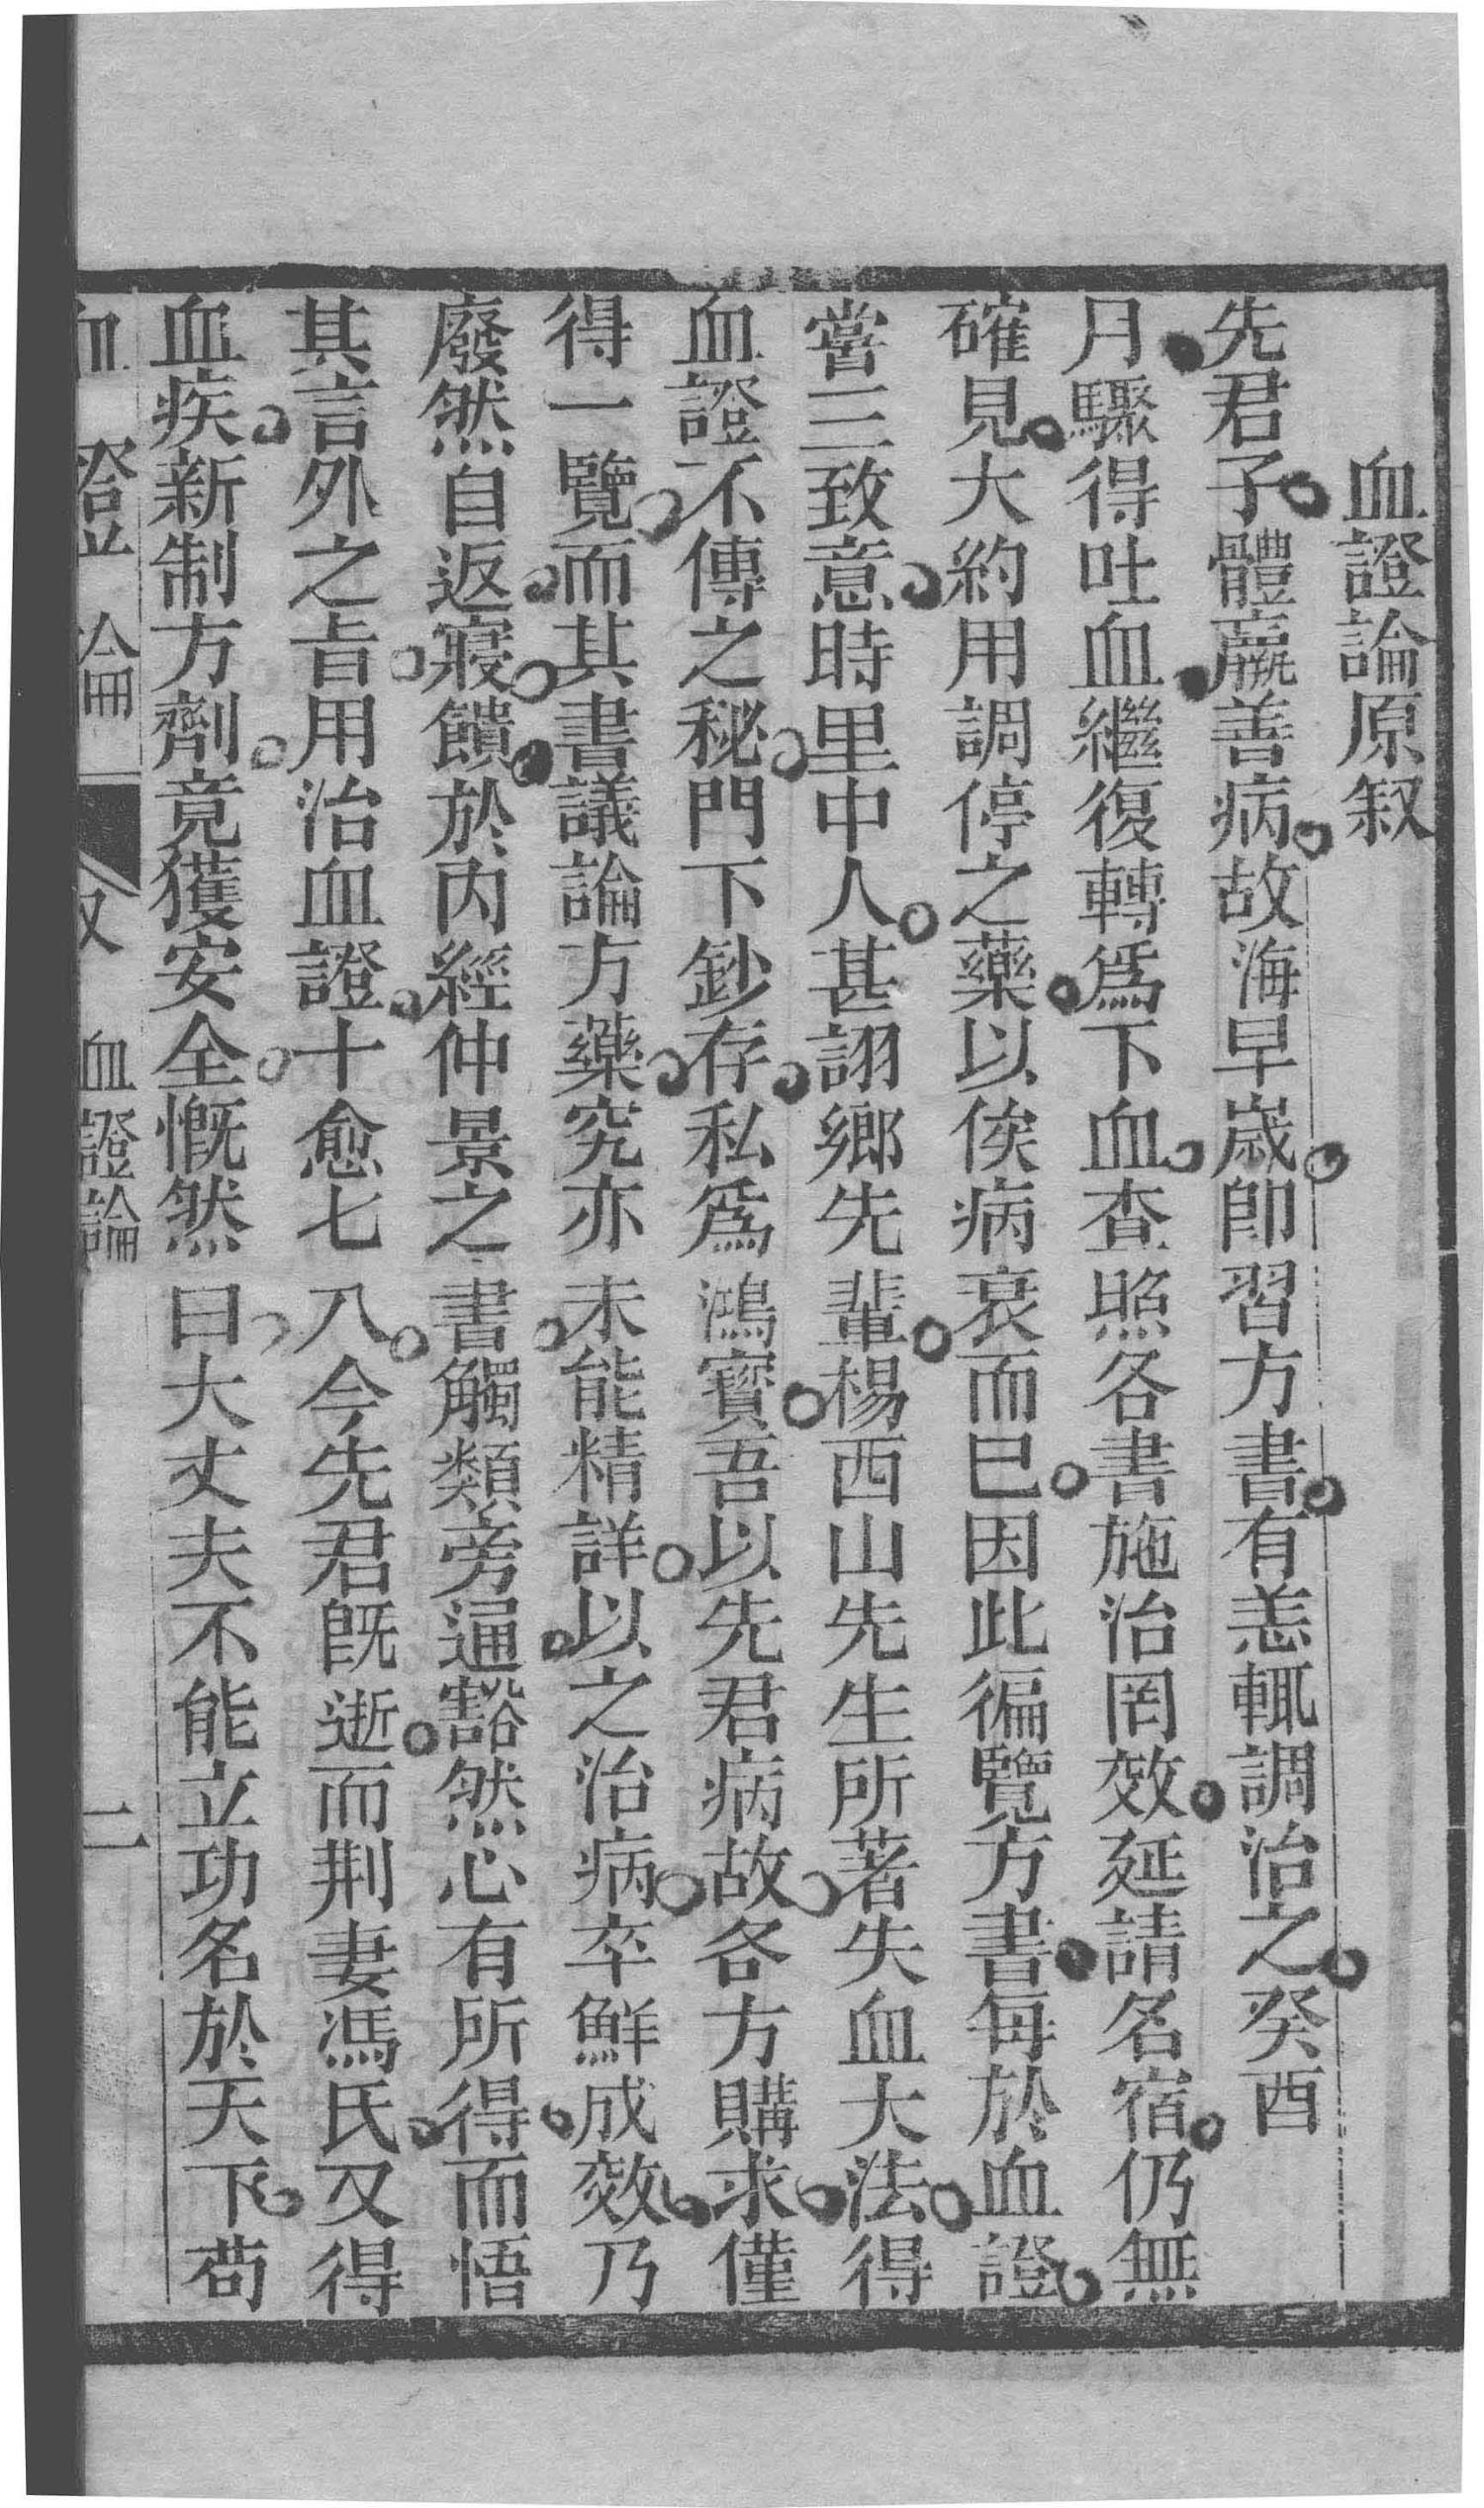 血證論原叙
先君子體羸善病故海早嵗卽習方書有恙輒調治之癸酉
月驟得吐血繼復轉爲下血查照各書施治罔效延請名宿仍無
確見大約用調停之藥以俟病衰而已因此徧覽方書每於血證
嘗三致意時里中人甚詡鄉先輩楊西山先生所著失血大法得
血證不傳之秘門下鈔存私爲鴻寳吾以先君病故各方購求僅
得一覽而其書議論方藥究亦未能精詳以之治病卒鮮成效乃
廢然自返寢饋於内經仲景之書觸類旁通豁然心有所得而悟
其言外之旨用治血證十愈七八今先君旣逝而荆妻馮氏又得
血疾新制方劑竟獲安全慨然曰大丈夫不能立功名於天下苟
血證論
叙
血證論
二